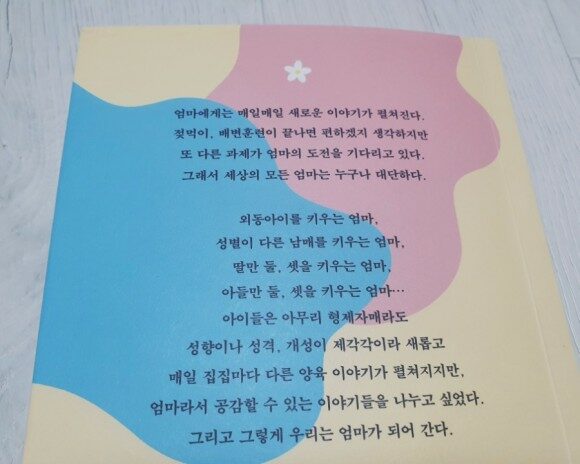 엄마에게는 매일매일 새로운 이야기가 펼쳐진다.
젖먹이, 배변훈련이 끝나면 편하겠지 생각하지만
또 다른 과제가 엄마의 도전을 기다리고 있다.
그래서 세상의 모든 엄마는 누구나 대단하다.
외동아이를 키우는 엄마,
성별이 다른 남매를 키우는 엄마,
딸만 둘, 셋을 키우는 엄마,
아들만 둘, 셋을 키우는 엄마…
아이들은 아무리 형제자매라도
성향이나 성격, 개성이 제각각이라 새롭고
매일 집집마다 다른 양육 이야기가 펼쳐지지만,
엄마라서 공감할 수 있는 이야기들을 나누고 싶었다.
그리고 그렇게 우리는 엄마가 되어 간다.